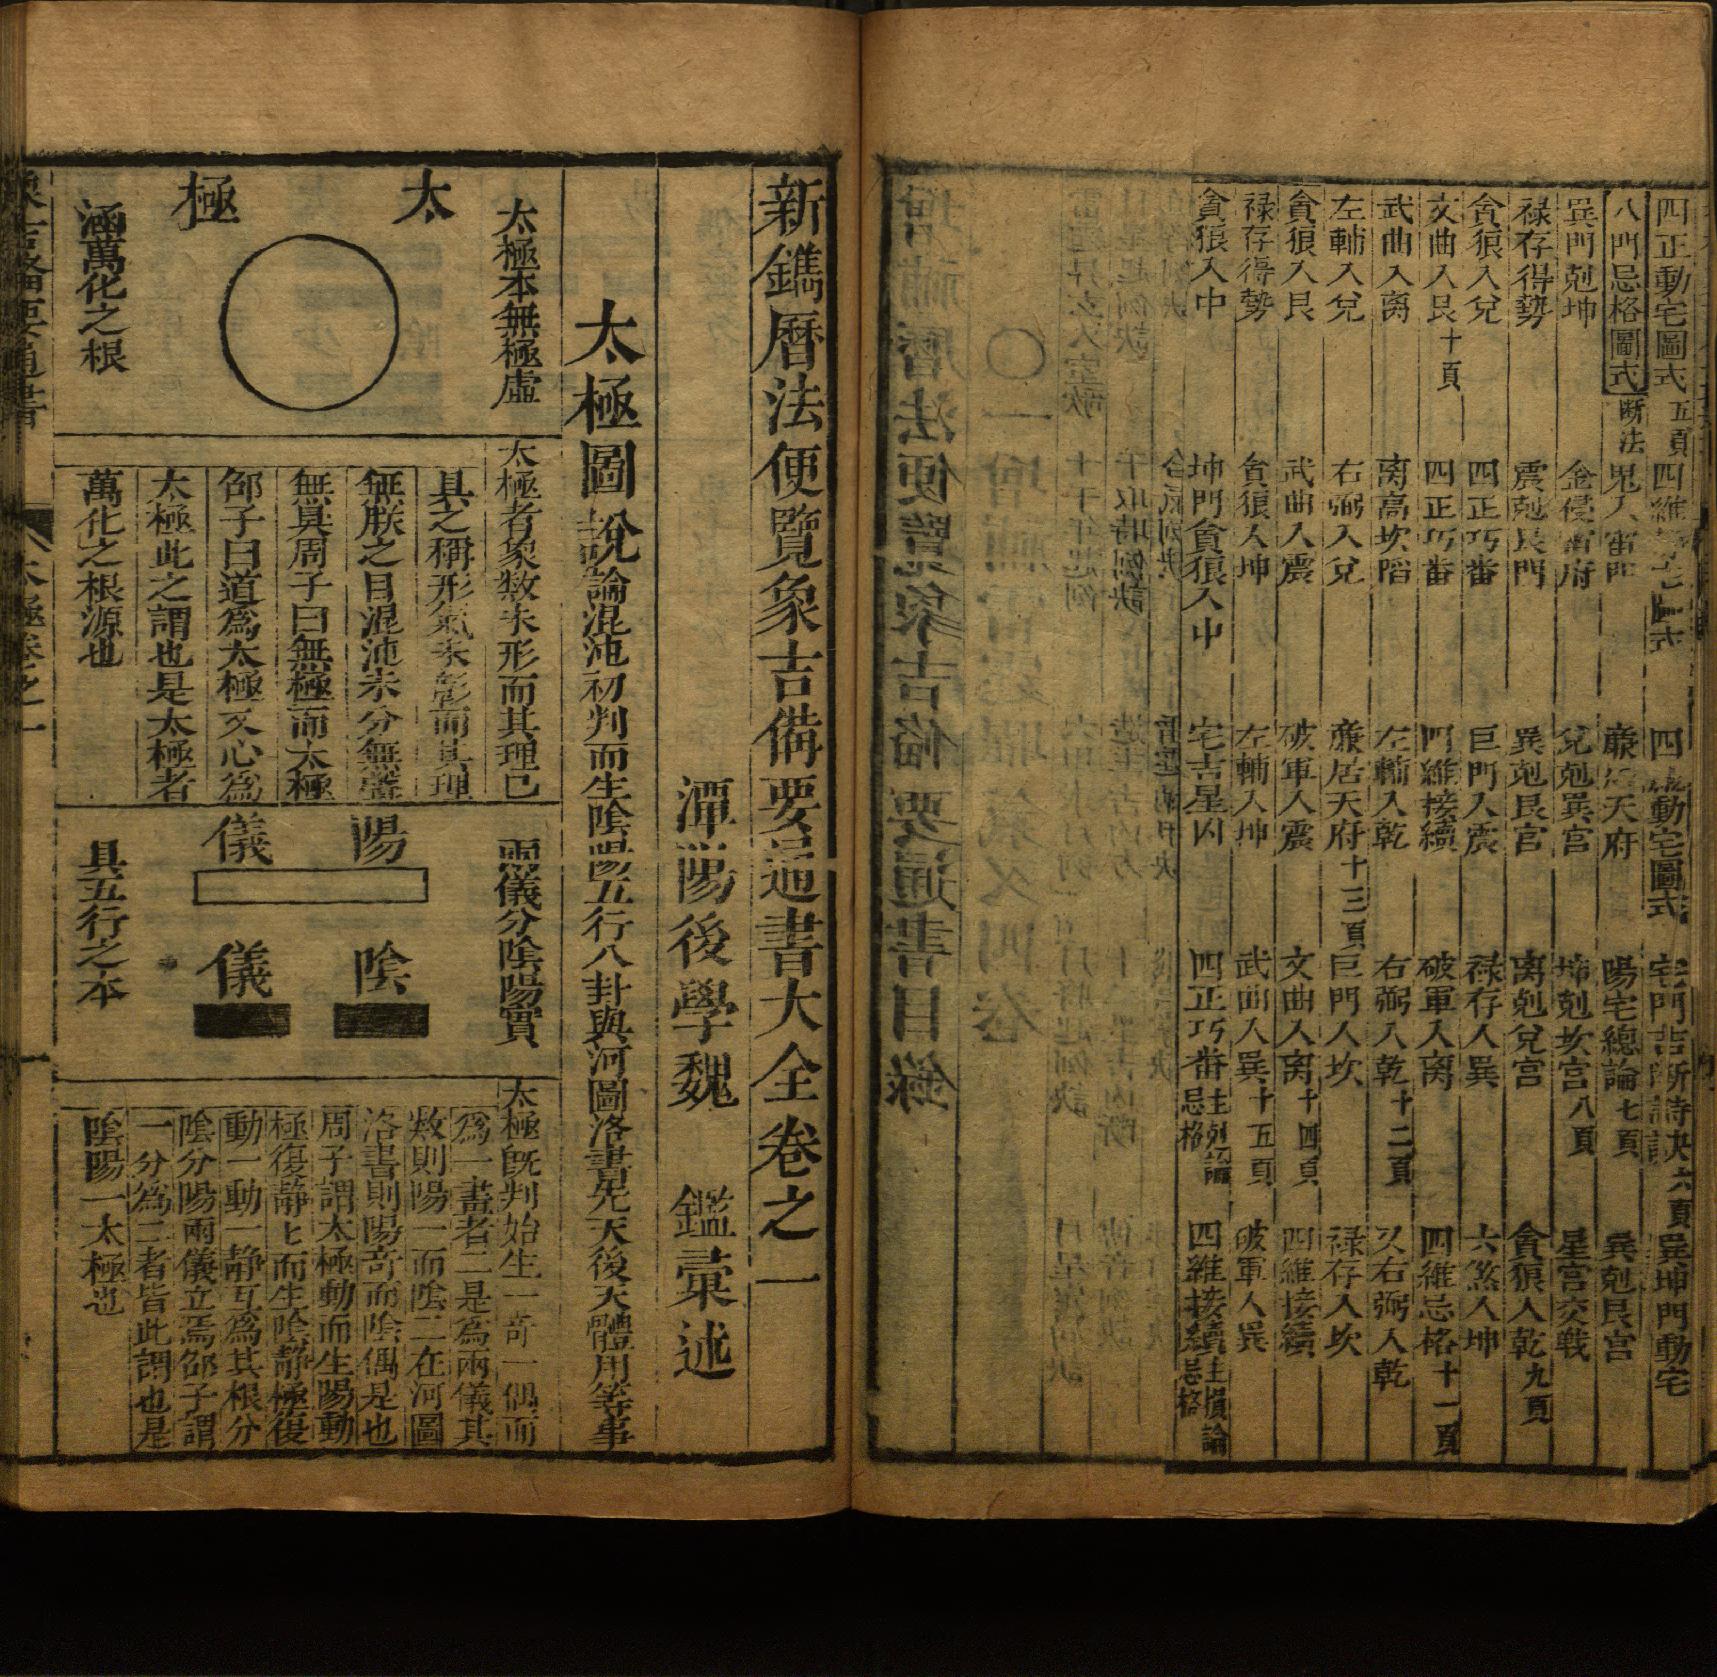 四正動宅圖式 五頁 四維 四 動宅圖式 宅門吉 断詩决 六頁 巽坤門動宅
八門忌格圖式 断法 鬼入雷門 廉 天府 陽宅總論 七頁 巽剋艮宮
巽門剋坤 金侵雷府 兌剋巽宮 坤剋坎宮 八頁 星宮交戰
祿存得勢 震剋艮門 巽剋艮宮 离剋兌宮 貪狼入乾 九頁
貪狼入兌 四正巧番 巨門入震 祿存入巽 六煞入坤
文曲入艮 十頁 四正巧番 四維接續 破軍入离 四維忌格 十一頁
武曲入离 离高坎陷 左輔入乾 右弼入乾 十二頁 又右弼入乾
左輔入兌 右弼入兌 廉居天府 十三頁 巨門入坎 祿存入坎
貪狼入艮 武曲入震 破軍入震 文曲入离 十四頁 四維接續
祿存得勢 貪狼入坤 左輔入坤 武曲入巽 十五頁 破軍入巽
貪狼入中 坤門貪狼入中 宅吉星凶 四正巧番 主剋論忌格 四維接續 主損論忌格
新鐫曆法便覽象吉備要通書大全卷之一
潭陽後學魏 鑑彙述
太極圖說 論混沌初判而生陰陽五行八卦與河圖洛書先天後天體用等事
太極本無極虛
太極
涵萬化之根
太極者象数未形而其理已
具之稱形氣未彰而其理
無朕之目混沌未分無聲
無臭周子曰無極而太極
邵子曰道為太極又心為
太極此之謂也是太極者
萬化之根源也
兩儀分陰陽實
陽儀
陰儀
具五行之本
太極既判始生一奇一偶而
為一畫者二是為兩儀其
数則陽一而陰二在河圖
洛書則陽奇而陰偶是也
周子謂太極動而生陽動
極復靜靜而生陰靜極復
動一動一靜互為其根分
陰分陽兩儀立焉邵子謂
一分為二者皆此謂也是
陰陽一太極也
象吉備要通書 太極卷之一 一